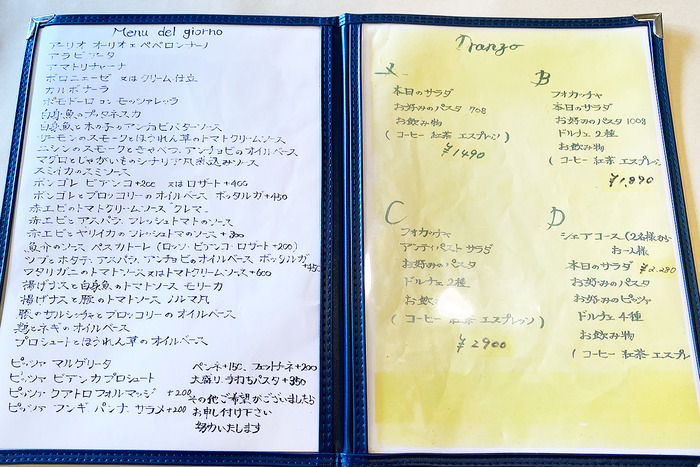 Menu del giorno
アーリオ オーリオ エ ペペロンチーノ
アラビアータ
アマトリチャーナ
ボロニェーゼ 又はクリーム仕立
カルボナーラ
ポモドーロ コン モッツァレッラ
白身魚のプッタネスカ
白身魚と木の子のアンチョビバターソース
サーモンのスモークとほうれん草のトマトクリームソース
ニシンのスモークときゃべつ、アンチョビのオイルベース
マグロとじゃがいものシチリア風煮込みソース
スミイカのスミソース
ボンゴレ ビアンコ+200 又は ロザート+400
ボンゴレとブロッコリーのオイルベース ボッタルガ+450
赤エビのトマトクリームソース "クレマ"
赤エビとアスパラ フレッシュトマトのソース
赤エビとヤリイカのフレッシュトマトのソース +300
魚介のソース ペスカトーレ (ロッソ・ビアンコ・ロザート+200)
ツブとホタテ、アスパラ、アンチョビのオイルベース ボッタルガ
+450
ワタリガニのトマトソース又はトマトクリームソース+600
揚げナスと白身魚のトマトソース モリーカ
揚げナスと豚のトマトソース ノルマ風
豚のサルシッチャとブロッコリーのオイルベース
鶏とネギのオイルベース
プロシュートとほうれん草のオイルベース
ピッツァ マルゲリータ
ピッツァ ビアンカ プロシュート
ピッツァ クアトロフォルマッジ +200
ピッツァ フンギ パンナ サラメ+200
ペンネ+150、フェットチーネ+200
大盛り、手打ちパスタ+350
その他ご希望がございましたら
お申し付け下さい
努力いたします
Pranzo
A
本日のサラダ
お好みのパスタ 70g
お飲み物
( コーヒー 紅茶 エスプレッソ )
¥1490
B
フォカッチャ
本日のサラダ
お好みのパスタ 100g
ドルチェ 2種
お飲み物
( コーヒー 紅茶 エスプレッソ
¥1,890
C
フォカッチャ
アンティパスト サラダ
お好みのパスタ
ドルチェ 2種
お飲
( コーヒー 紅茶 エスプレッソ )
¥2900
D
シェアコース (2名様から
お一人様
本日のサラダ ¥2,280
お好みのパスタ
お好みのピッツァ
ドルチェ 4種
お飲み物
( コーヒー 紅茶 エスプレ